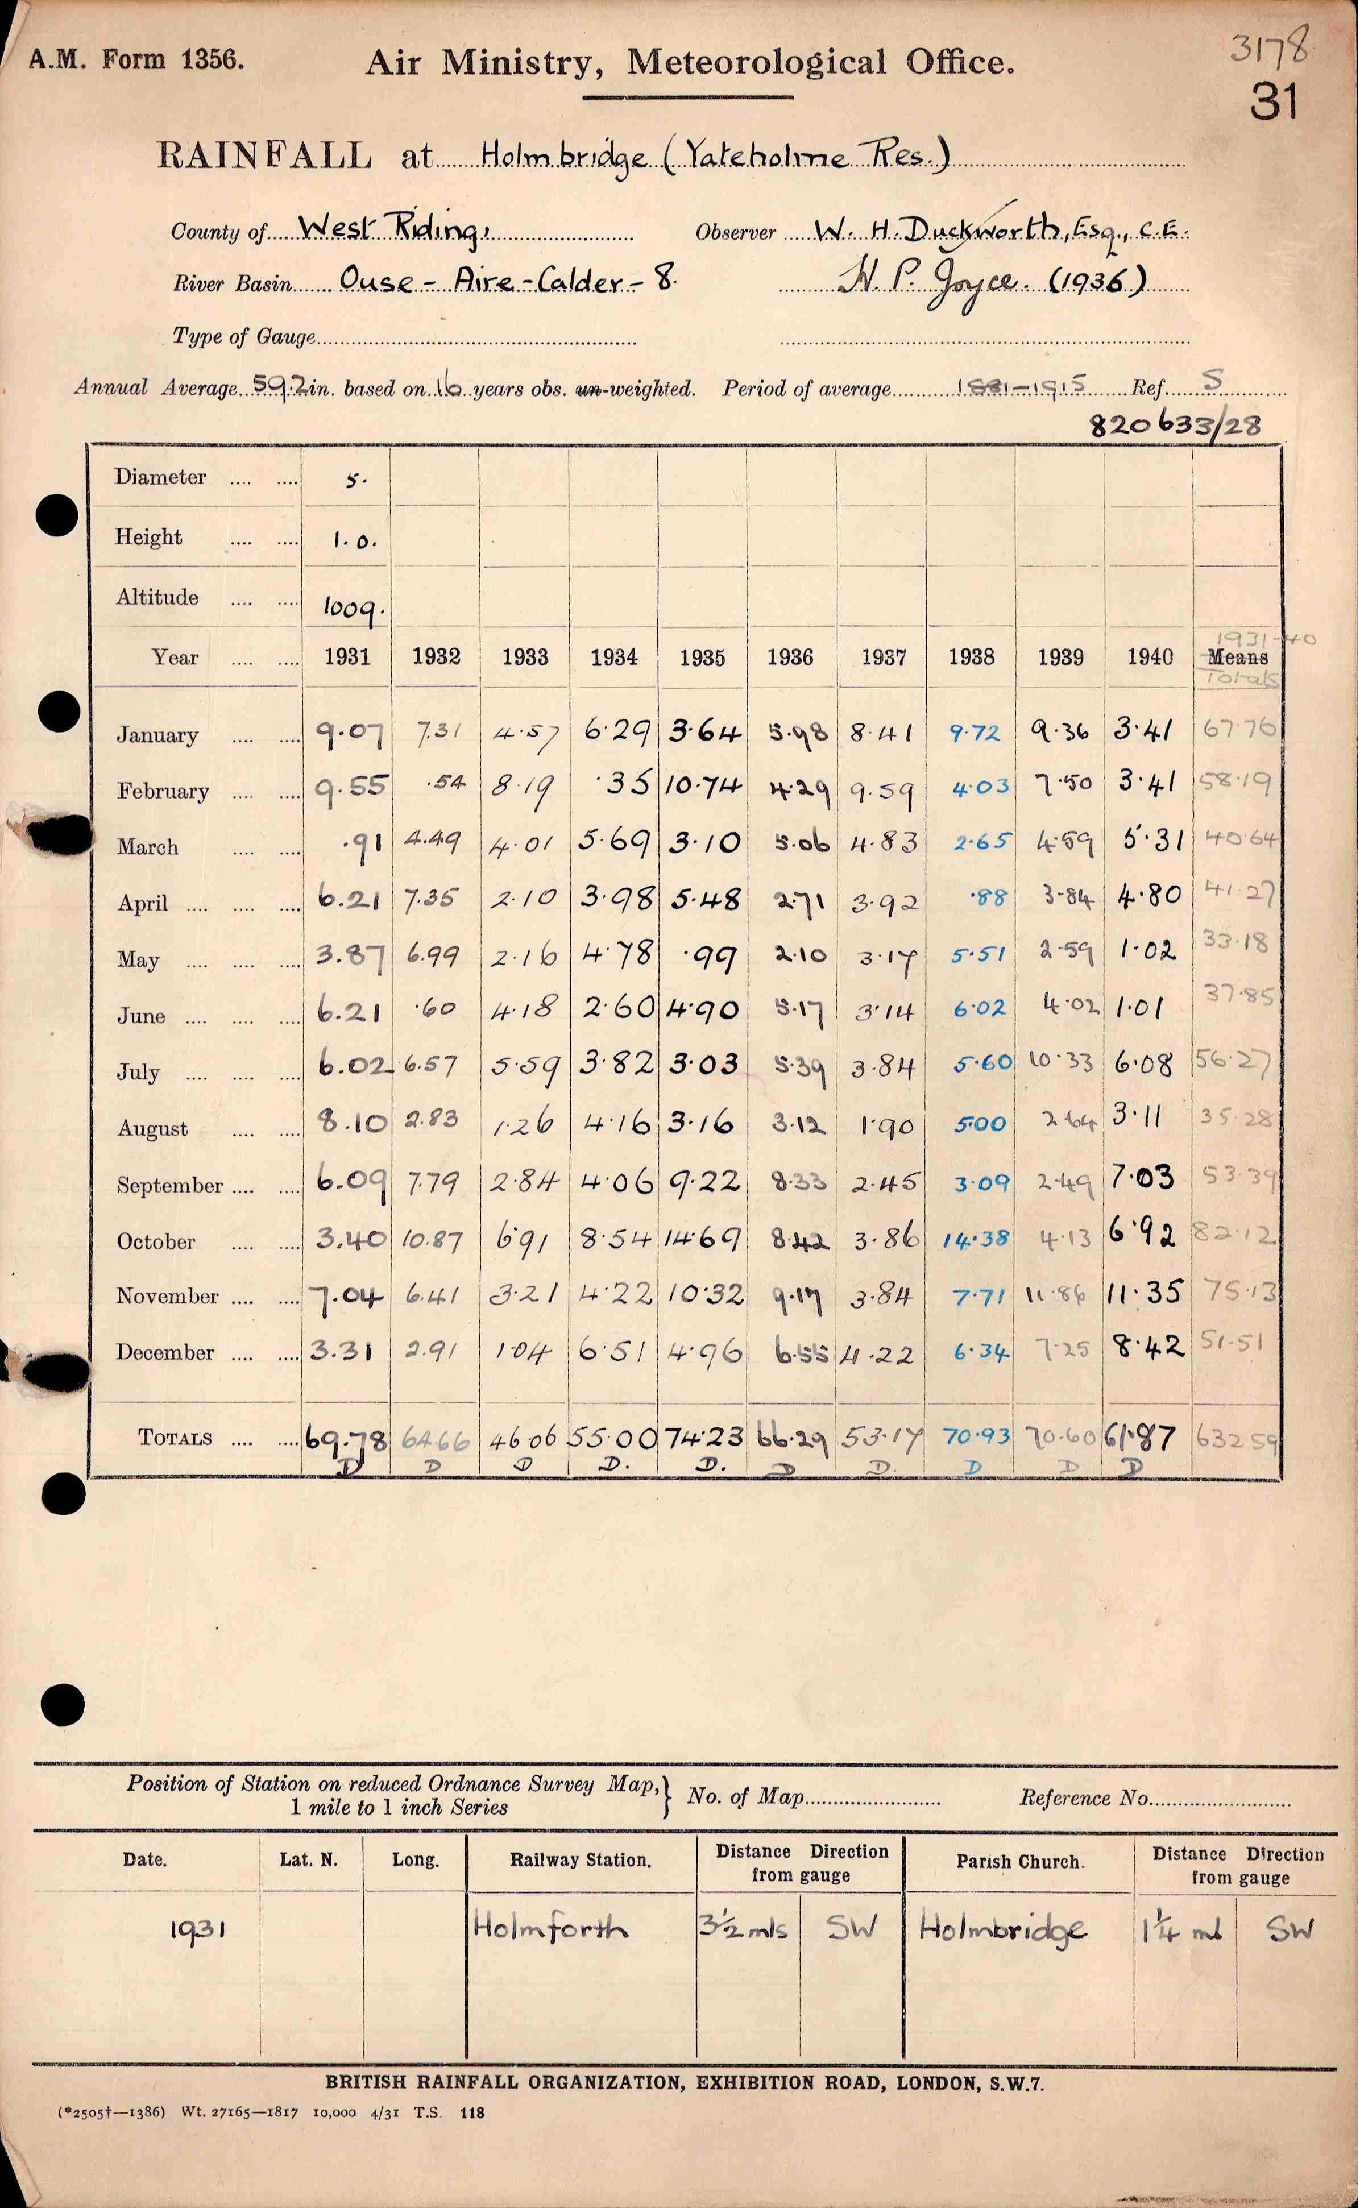 3178
A.M. Form 1356. Air Ministry, Meteorological Office.
31
RAINFALL at Holmbridge (Yateholme Res.)
County of West Riding. Observer W. H. Duckworth, Esq., C.E.
River Basin Ouse - Aire - Calder - 8. H. P. Joyce. (1936)
Type of Gauge
Annual Average 59.2 in. based on 16 years obs. un-weighted. Period of average 1881-1915 Ref. S
820633/28
Diameter .... .... 5.
Height .... .... 1.0.
Altitude .... .... 1009.
1931-40
Year .... .... 1931 1932 1933 1934 1935 1936 1937 1938 1939 1940 Means
Totals
January .... .... 9.07 7.31 4.57 6.29 3.64 5.98 8.41 9.72 9.36 3.41 67.76
February .... .... 9.55 .54 8.19 .35 10.74 4.29 9.59 4.03 7.50 3.41 58.19
March .... .... .91 4.49 4.01 5.69 3.10 5.06 4.83 2.65 4.59 5.31 40.64
April .... .... .... 6.21 7.35 2.10 3.98 5.48 2.71 3.92 .88 3.84 4.80 41.27
May .... .... .... 3.87 6.99 2.16 4.78 .99 2.10 3.17 5.51 2.59 1.02 33.18
June .... .... .... 6.21 .60 4.18 2.60 4.90 5.17 3.14 6.02 4.02 1.01 37.85
July .... .... .... 6.02 6.57 5.59 3.82 3.03 5.39 3.84 5.60 10.33 6.08 56.27
August .... .... 8.10 2.83 1.26 4.16 3.16 3.12 1.90 5.00 2.64 3.11 35.28
September .... .... 6.09 7.79 2.84 4.06 9.22 8.33 2.45 3.09 2.49 7.03 53.39
October .... .... 3.40 10.87 6.91 8.54 14.69 8.42 3.86 14.38 4.13 6.92 82.12
November .... .... 7.04 6.41 3.21 4.22 10.32 9.17 3.84 7.71 11.86 11.35 75.13
December .... .... 3.31 2.91 1.04 6.51 4.96 6.55 4.22 6.34 7.25 8.42 51.51
TOTALS .... .... 69.78 64.66 46.06 55.00 74.23 66.29 53.17 70.93 70.60 61.87 632.59
D D D D. D. D D. D D D
Position of Station on reduced Ordnance Survey Map,} No. of Map Reference No.
1 mile to 1 inch Series
Date. Lat. N. Long. Railway Station. Distance Direction from gauge Parish Church. Distance Direction from gauge
1931 Holmforth 3½ mls SW Holmbridge 1¼ ml SW
BRITISH RAINFALL ORGANIZATION, EXHIBITION ROAD, LONDON, S.W.7.
(*2505†—1386) Wt. 27165—1817 10,000 4/31 T.S. 118